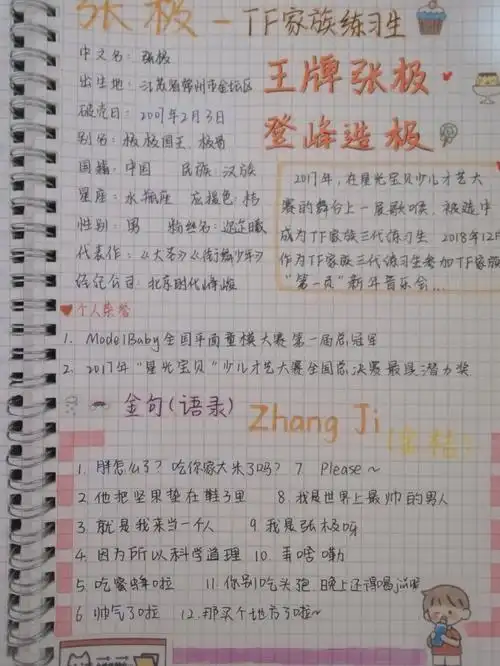 张极 - TF家族练习生
中文名：张极
王牌张极
出生地：江苏省常州市金坛区
登峰造极
破壳日：2007年2月3日
别名：极极国王、极哥
国籍：中国 民族：汉族
星座：水瓶座 应援色：桔
性别：男 粉丝名：
代表作：《大梦》《街舞少年》
经纪公司：北京时代峰峻
2017年，在星光宝贝少儿才艺大
赛的舞台上一展歌喉，被选中
成为TF家族三代练习生 2018年12月
作为TF家族三代练习生参加TF家族
"第一页"新年音乐会...
个人荣誉
1. ModelBaby全国平面童模大赛第一届总冠军
2. 2017年"星光宝贝"少儿才艺大赛全国总决赛最具潜力奖
金句(语录) Zhang Ji
1. 胖怎么了？吃你家大米了吗？ 7. Please～
2. 他把坚果垫在鞋子里 8. 我是世界上最帅的男人
3. 就是我来当一个人 9. 我是张极呀
4. 因为所以科学道理 10. 弄啥嘞
5. 吃蜜蜂啦 11. 你别吃头孢 晚上还得喝
6. 帅气了啦 12. 那买个地方了啦~